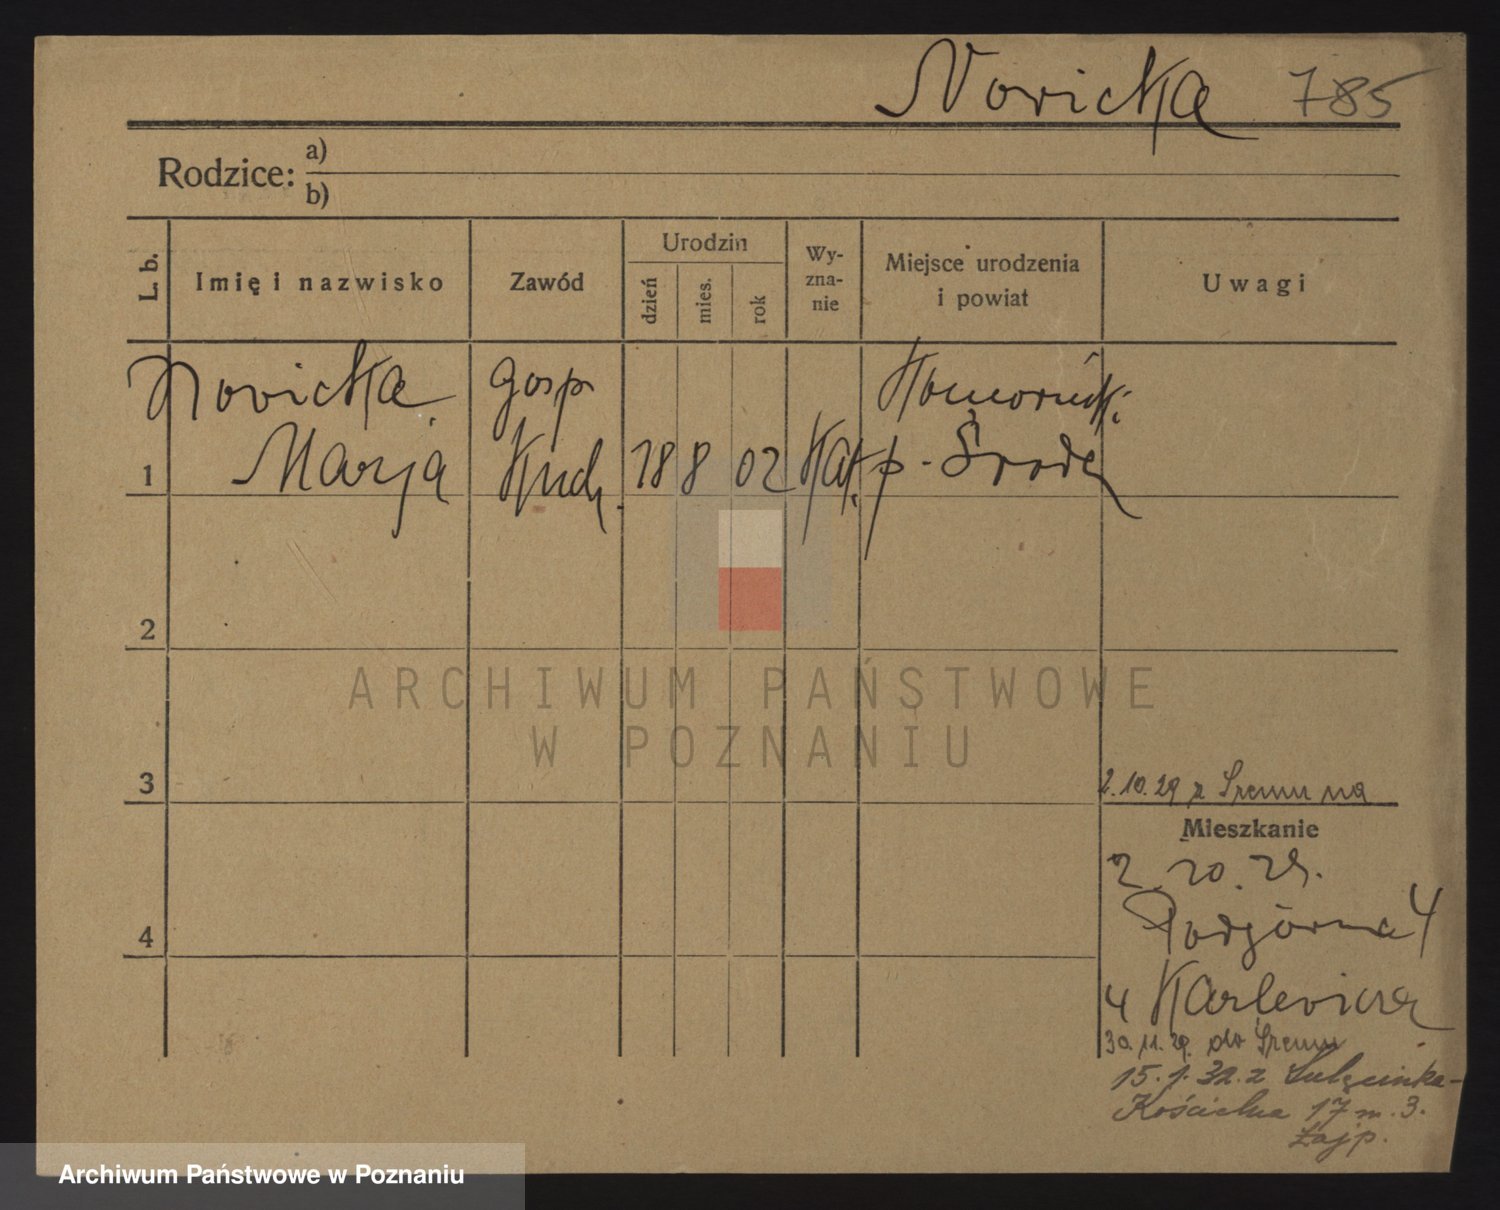 Nowicka 785
Rodzice: a)
b)
L. b.
Imię i nazwisko
Zawód
Urodzin
dzień
mies.
rok
Wy-
zna-
nie
Miejsce urodzenia
i powiat
Uwagi
Nowicka gosp
1 Marja 18 8 02 Kat. p. Środa
2
3
4
2.10.29 z Śremu na
Mieszkanie
2.10.29.
Podgórna 4
30.11.29. do Śremu
15.1.32. z
Kościelna 17 m. 3.
ARCHIWUM PAŃSTWOWE
W POZNANIU
Archiwum Państwowe w Poznaniu